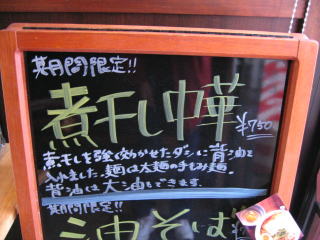 期間限定!!
煮干し中華
¥750
煮干しを強く効かせたダシに背油を
入れました。麺は太麺の手もみ麺。
背油は大油もできます。
期間限定!!